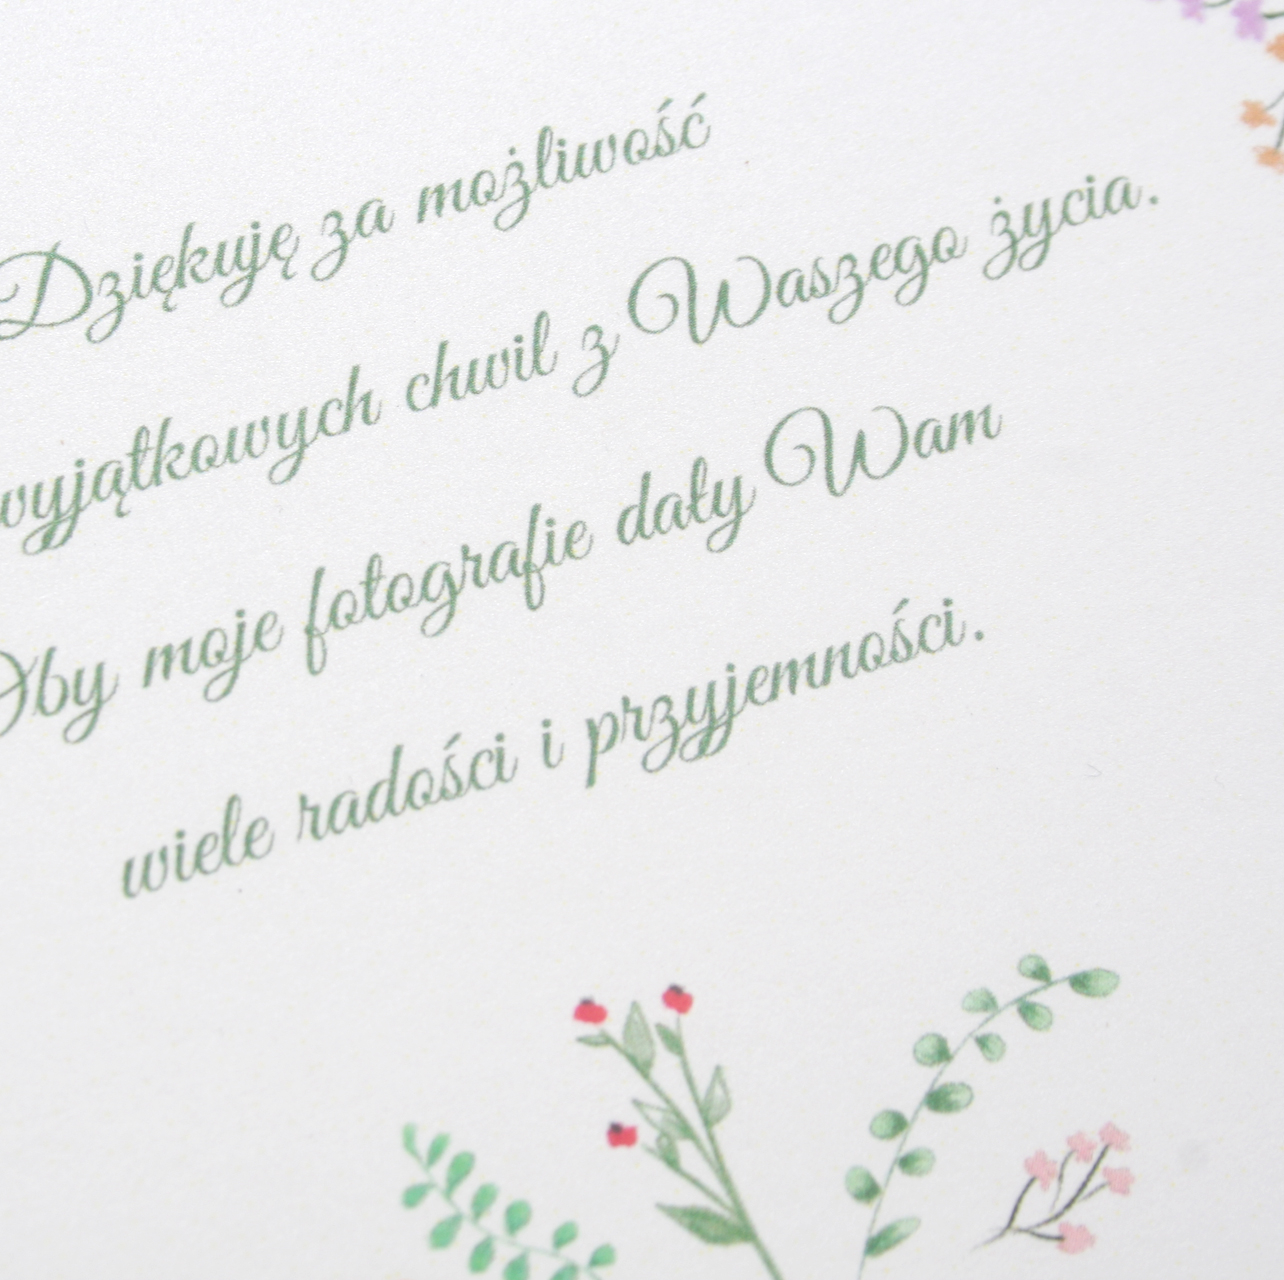 Dziękuję za możliwość
wyjątkowych chwil z Waszego życia.
Aby moje fotografie dały Wam
wiele radości i przyjemności.